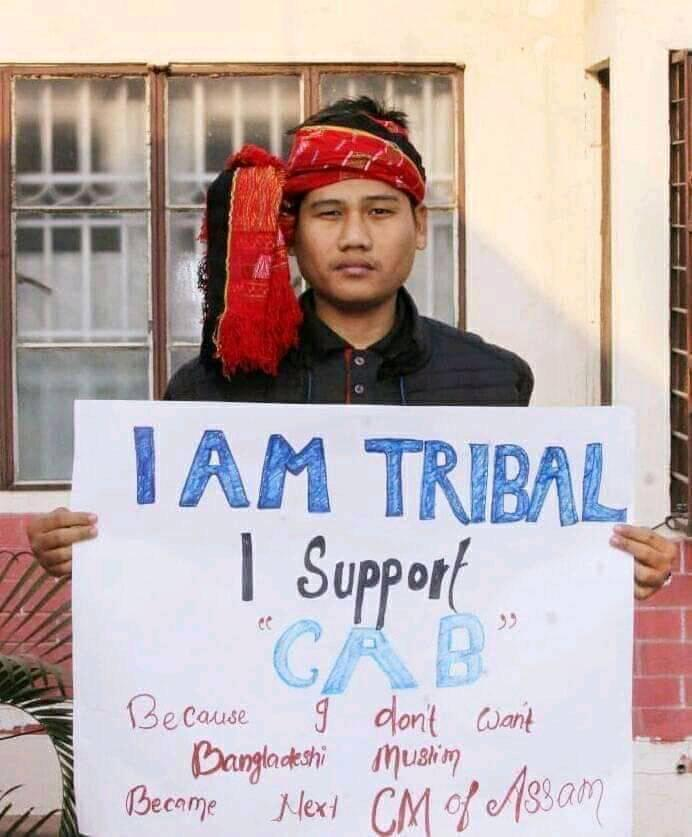 I AM TRIBAL
I Support
"CAB"
Because I don't want
Bangladeshi Muslim
Became Next CM of Assam